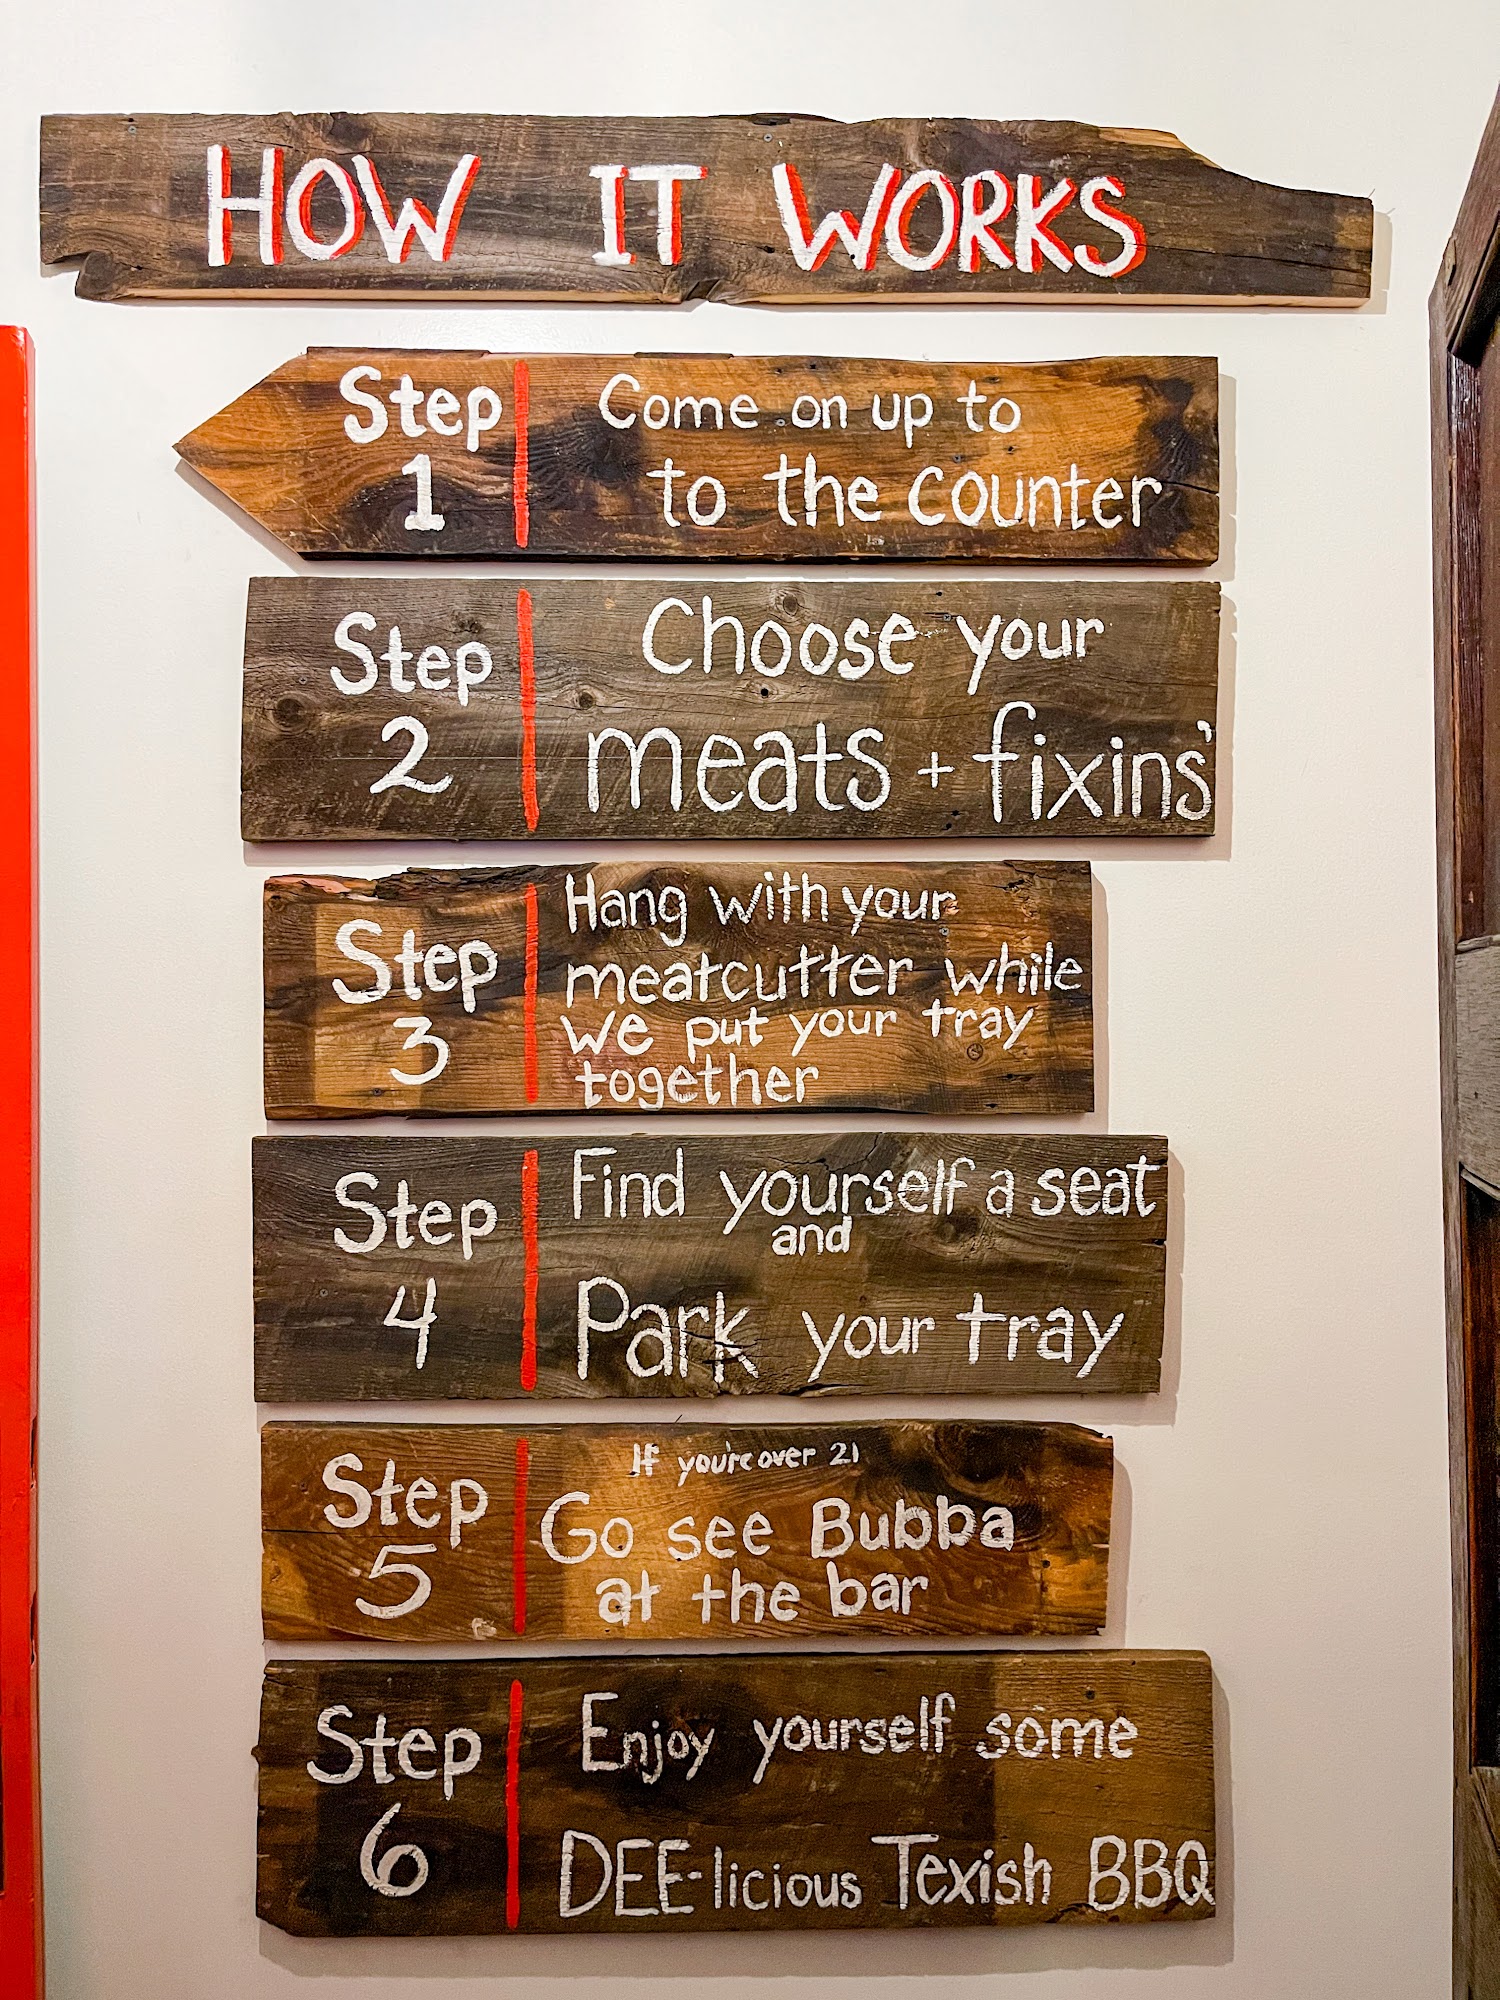 HOW IT WORKS
Step
1
Come on up to
to the counter
Step
2
Choose your
meats + fixins'
Step
3
Hang with your
meatcutter while
we put your tray
together
Step
4
Find yourself a seat
and
Park your tray
Step
5
If you're over 21
Go see Bubba
at the bar
Step
6
Enjoy yourself some
DEE-licious Texish BBQ